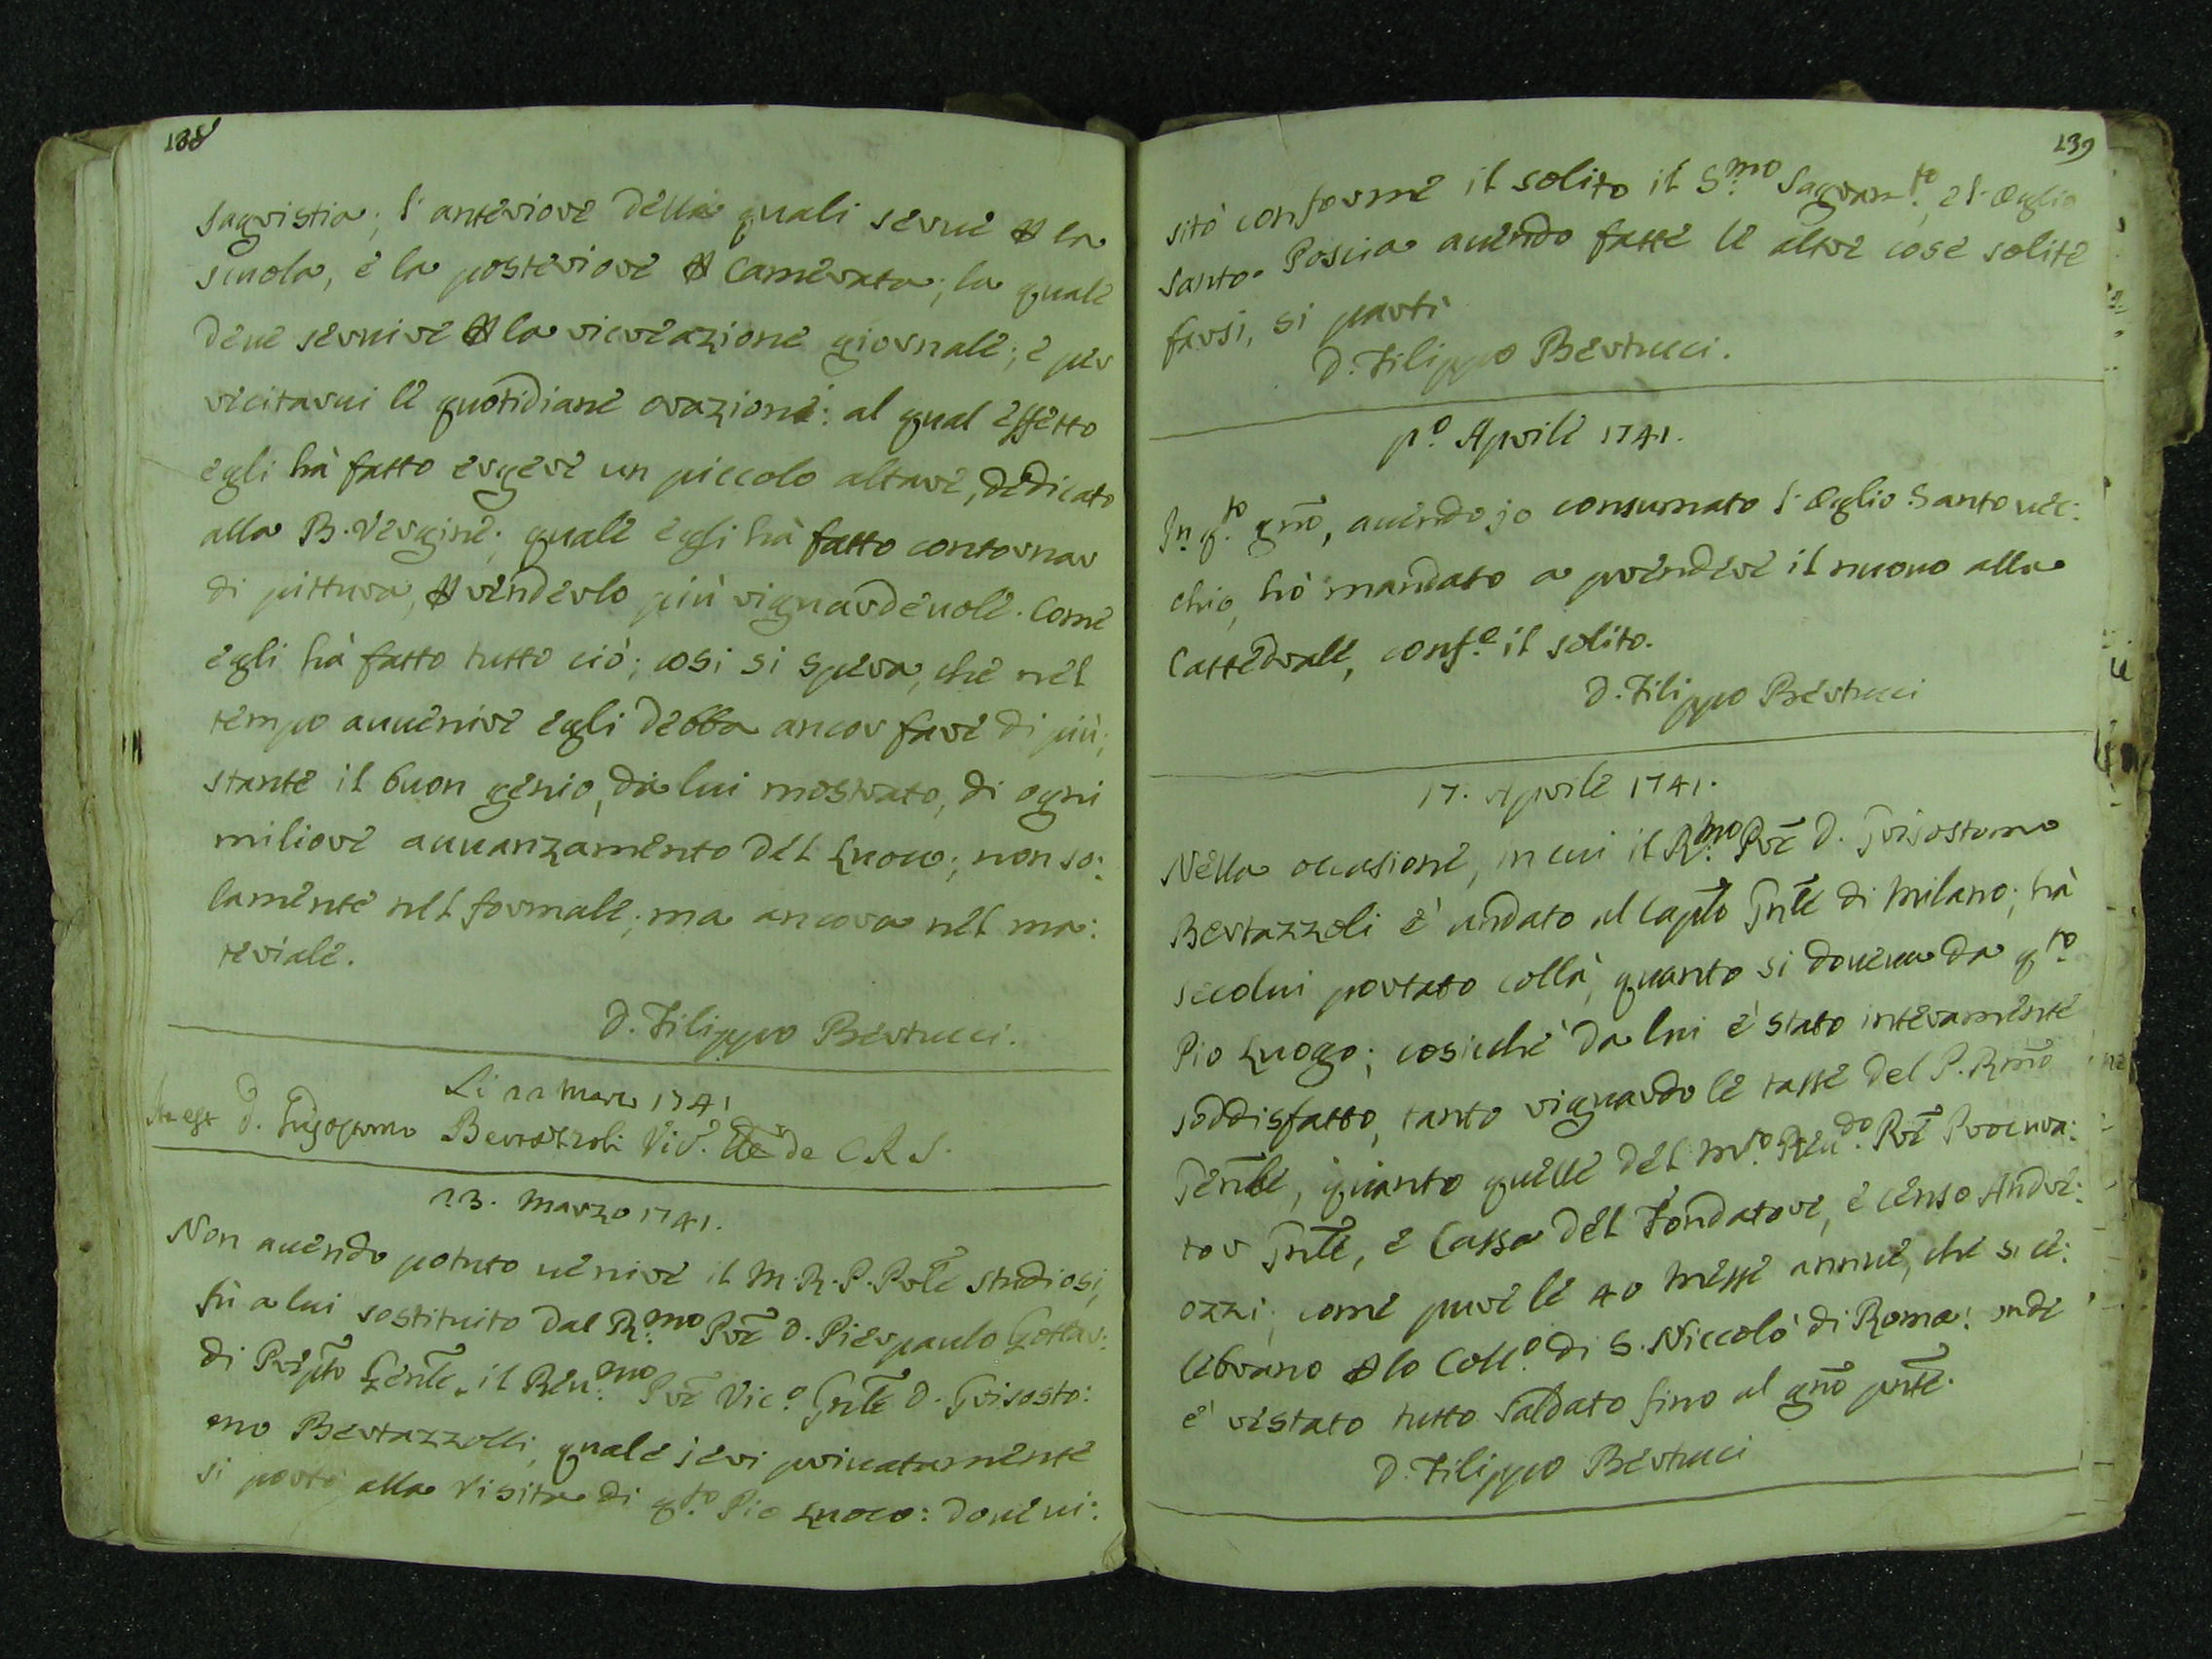 138
Sagristia; l'anteriore delle quali serue per la
scuola, e la posteriore per Camerata; la quale
deue seruire per la ricreazione giornale; e per
recitarui le quotidiane orazioni: al qual effetto
egli hà fatto ergere un piccolo altare, dedicato
alla B. Vergine; quale egli hà fatto contornar
di pittura, per renderlo più riguardeuole. Come
egli hà fatto tutto ciò; così si spera, che nel
tempo auuenire egli debba ancor fare di più;
stante il buon genio, da lui mostrato, di ogni
miliore auuanzamento del Luoco; non so:
lamente nel formale; ma ancora nel ma:
teriale.
D. Filippo Bertucci.
Li 22 Marzo 1741
D. Grisostomo Bertazzoli Vis.r de CRS.
23. Marzo 1741.
Non auendo potuto uenire il M.R.P. Prõle Studiosi,
fù a lui sostituito dal R.mo Prẽ D. Pierpaulo Gottar:
di Prẽpto Genle. il Reu.mo Prẽ Vic.o Gnle D. Grisosto:
mo Bertazzolli, quale ieri priuatamente
si portò alla Visita di q.to Pio Luoco: doue ui:
139
sitò conforme il solito il S.mo Sagram.to, e l'Oglio
Santo. Poscia auendo fatte le altre cose solite
farsi, si partì
D. Filippo Bertucci.
p.o Aprile 1741.
In q.to gno, auendo jo consumato l'Oglio Santo uec:
chio, hò mandato a prendere il nuouo alla
Cattedrale, conf.e il solito.
D. Filippo Bertucci
17. Aprile 1741.
Nella occasione, in cui il R.mo Prẽ D. Grisostomo
Bertazzoli è andato al Caplo Gnle di Milano; hà
secolui portato collà, quanto si doueua da q.to
Pio Luogo; cosicché da lui è stato interamente
soddisfatto, tanto riguardo le tasse del P. Rmo
Genle, quanto quelle del M.to Reu.do Prẽ Procura:
tor Gnle, e Cassa del Fondatore, e censo Andre:
ozzi; come pure le 40 Messe annue, che si ce:
lebrano per lo Coll.o di S. Niccolò di Roma: onde
è restato tutto saldato fino al gno pnte.
D. Filippo Bertucci